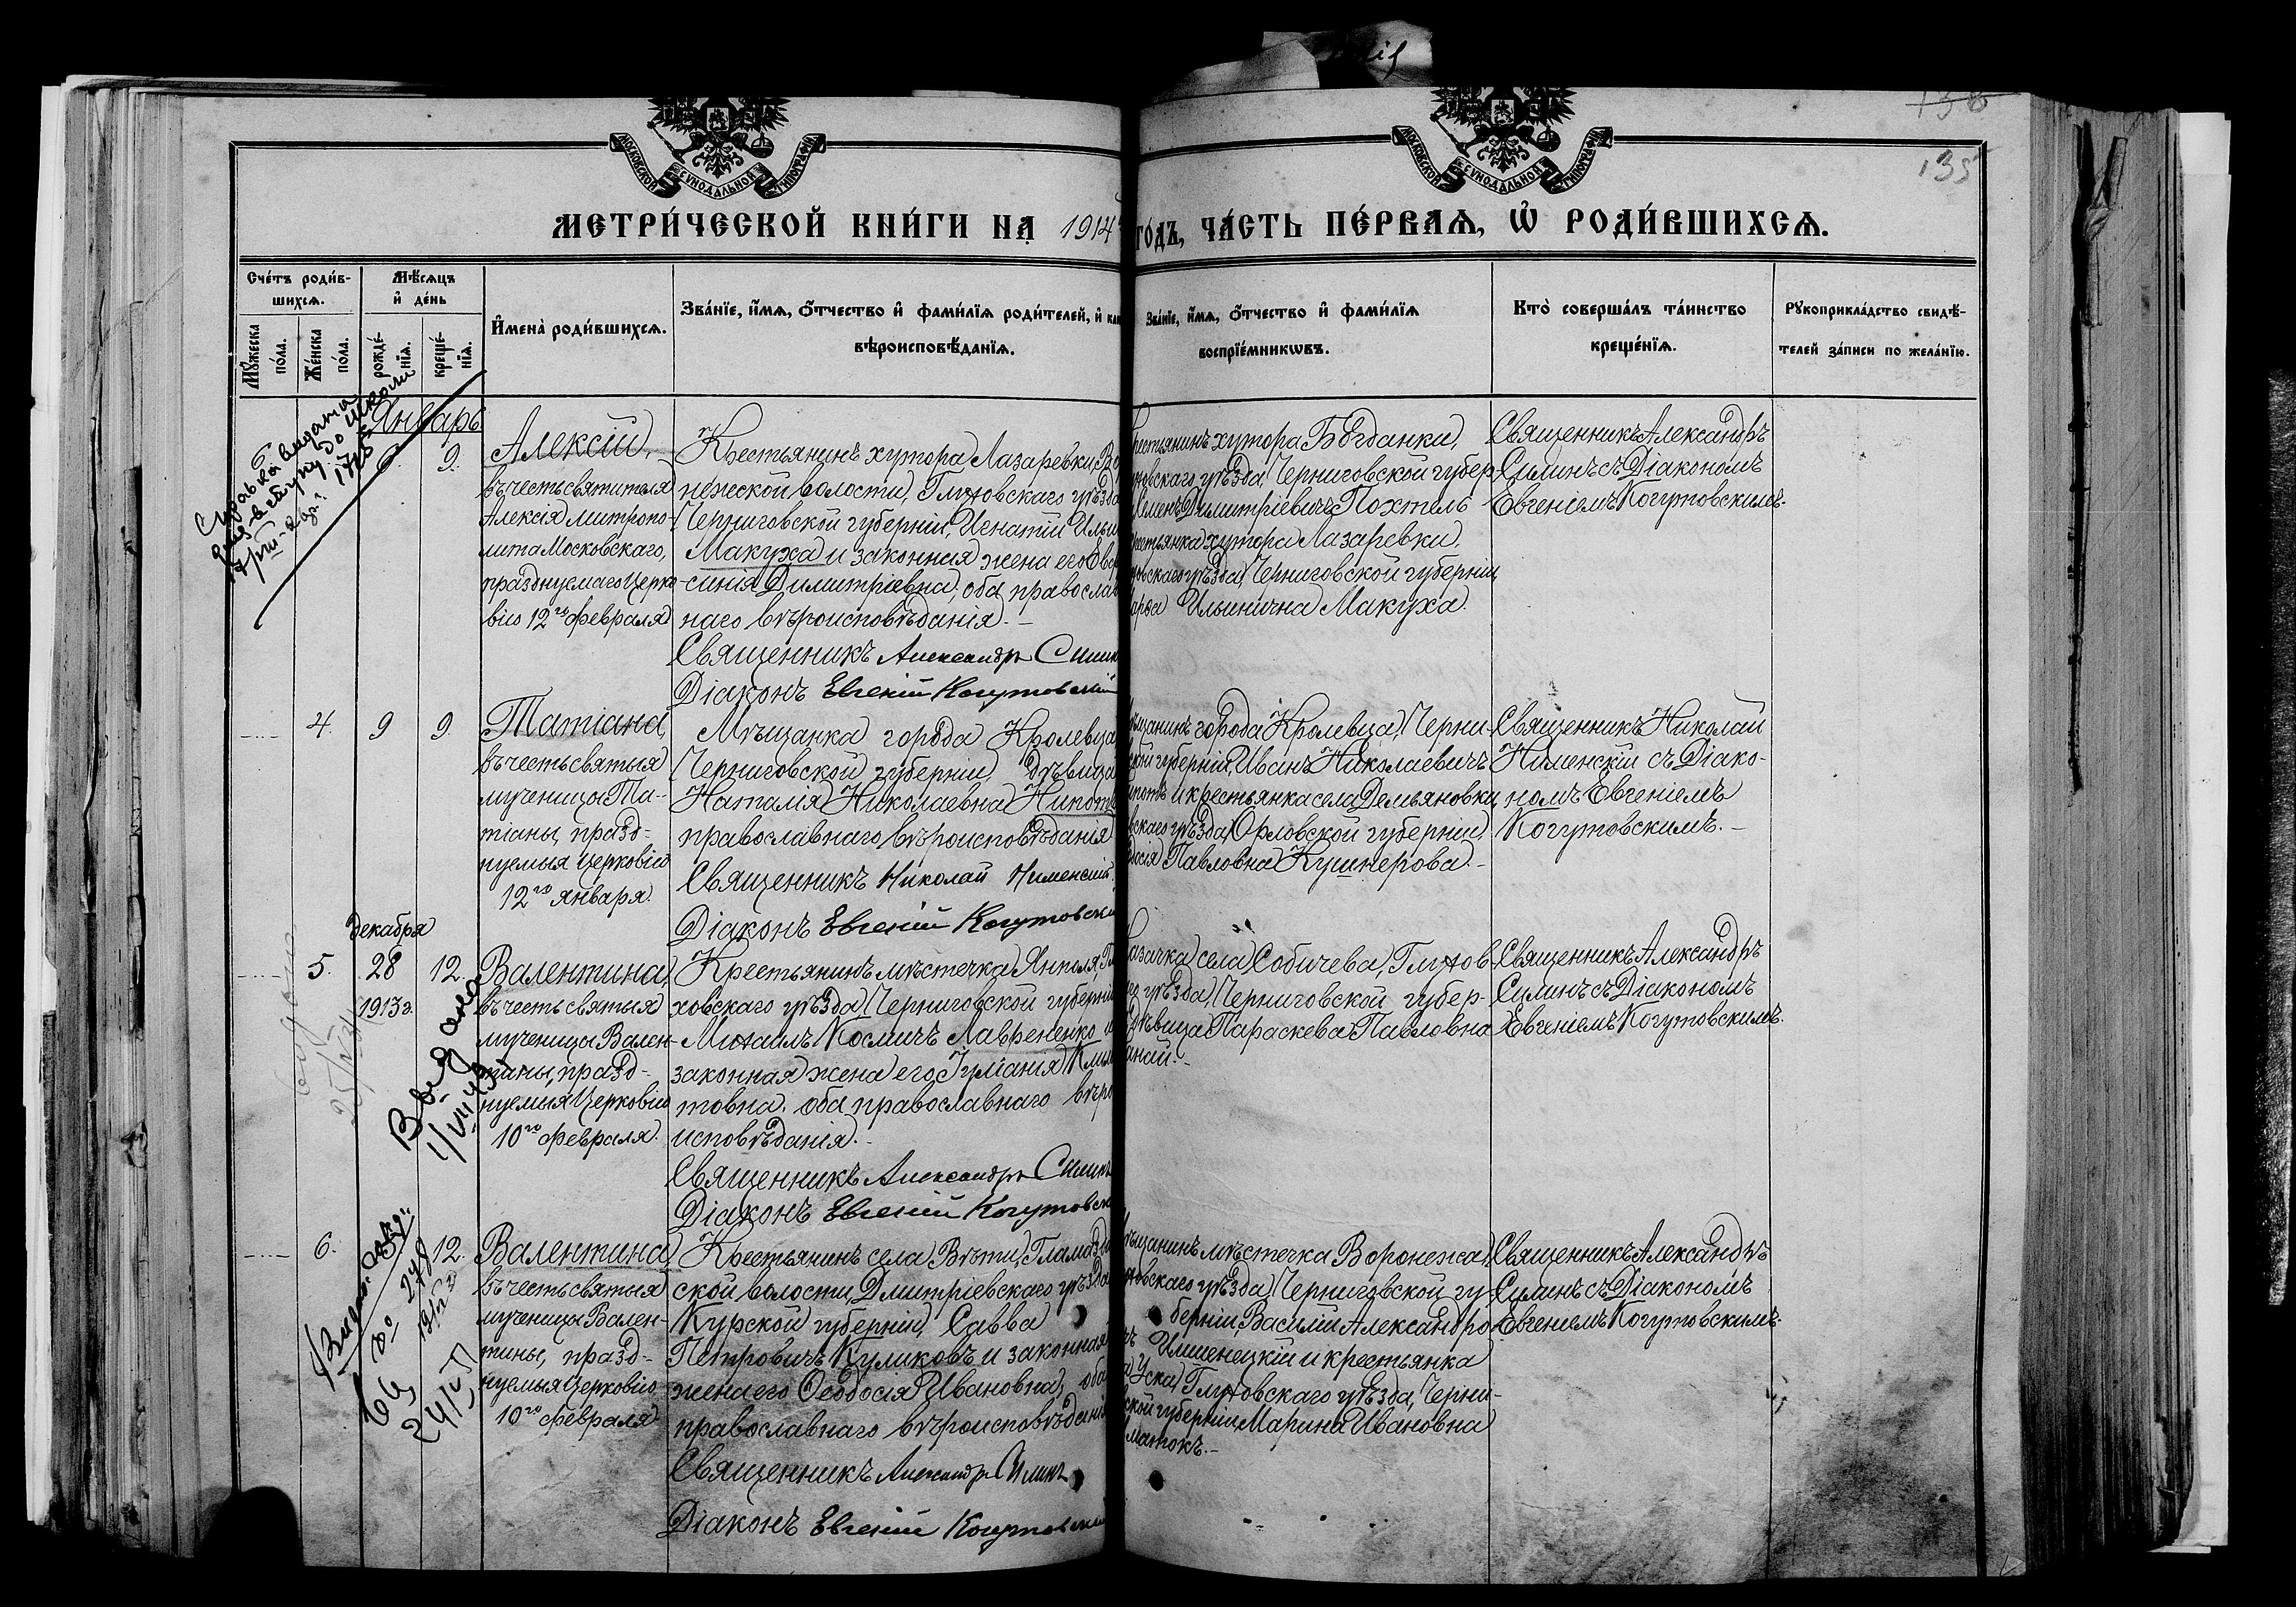 135
МОСКОВСКОЙ СѴНОДАЛЬНОЙ ТИПОГРАФІИ
МОСКОВСКОЙ СѴНОДАЛЬНОЙ ТИПОГРАФІИ
МЕТРИ́ЧЕСКОЙ КНИ́ГИ НА 1914 ГО́ДЪ, ЧА́СТЬ ПЕ́РВАѦ, Ѡ҆ РОДИ́ВШИХСѦ.
Сче́тъ роди́в-
шихсѧ.
Мꙋ́жеска по́ла.
Же́нска по́ла.
Мѣ́сѧцъ
и҆ де́нь
рожде́-
нїѧ.
креще́-
нїѧ.
И҆мена̀ роди́вшихсѧ.
Зва́нїе, и҆́мѧ, ѻ҆́тчество и҆ фами́лїѧ роди́телей, и҆
вѣроисповѣ́данїѧ.
Зва́нїе, и҆́мѧ, ѻ҆́тчество и҆ фами́лїѧ
воспрїе́мникѡвъ.
Кто̀ соверша́лъ та́инство
креще́нїѧ.
Рꙋкоприкла́дство свидѣ́-
телей за́писи по жела́нїю.
Январь
9.
Алексій,
въ честь святителя
Алексія митропо-
лита Московскаго,
празднуемаго Церко-
вію 12го февраля
Крестьянинъ хутора Лазаревки, Во
нежской волости, Глуховскаго уѣзда
Черниговской губерніи, Игнатій Ильи
Макуха и законная жена его Евф
синія Димитріевна, оба православ
наго вѣроисповѣданія.
Священникъ Александръ Силин
Діаконъ Евгеній Когутовскій
крестьянинъ хутора Богданки,
ховскаго уѣзда Черниговской губер-
Семенъ Димитріевичъ Похтель
крестьянка хутора Лазаревки,
ховскаго уѣзда, Черниговской губерніи
Марѳа Ильинична Макуха.
Священникъ Александръ
Силинъ съ Діакономъ
Евгеніемъ Когутовскимъ.
4. 9 9.
Татіана,
въ честь святыя
мученицы Та-
тіаны, празд-
нуемыя Церковію
12го января.
Мѣщанка города Кролевца
Черниговской губерніи, дѣвица
Наталія Николаевна
православнаго вѣроисповѣданія
Священникъ Николай Нименскій
Діаконъ Евгеній Когутовскі
мѣщанинъ города Кролевца, Черни-
ской губерніи, Иванъ Николаевичъ
и крестьянка села Демьяновки
скаго уѣзда, Орловской губерніи,
досія Павловна Кушнерова.
Священникъ Николай
Нименскій съ Діако-
номъ Евгеніемъ
Когутовскимъ.
декабря
5. 28 12.
1913 г.
Валентина,
въ честь святыя
мученицы Вален-
тины, празд-
нуемыя Церковію
10го февраля.
Крестьянинъ мѣстечка Янполя, Гл
ховскаго уѣзда Черниговской губерніи
Михаилъ Космичъ Лавриненко и
законная жена его Іуліанія Клим
товна, оба православнаго вѣро
исповѣданія.
Священникъ Александръ Силинъ
Діаконъ Евгеній Когутовск
казачка села Собичева, Глухов-
го уѣзда Черниговской губер-
дѣвица Параскева Павловна
Священникъ Александръ
Силинъ съ Діакономъ
Евгеніемъ Когутовскимъ.
Выдано
6. 12.
Валентина,
въ честь святыя
мученицы Вален-
тины, празд-
нуемыя Церковію
10го февраля
Крестьянинъ села Вѣти, Гламазди
ской волости, Дмитріевскаго уѣзда
Курской губерніи, Савва
Петровичъ Куликовъ и законная
жена его Ѳеодосія Ивановна, оба
православнаго вѣроисповѣданія
Священникъ Александръ Силинъ
Діаконъ Евгеній Когутовскій
мѣщанинъ мѣстечка Воронежа,
ховскаго уѣзда Черниговской гу-
берніи, Василій Александро-
и крестьянка
Уска, Глуховскаго уѣзда, Черни-
ской губерніи, Марина Ивановна
Священникъ Александръ
Силинъ съ Діакономъ
Евгеніемъ Когутовскимъ.